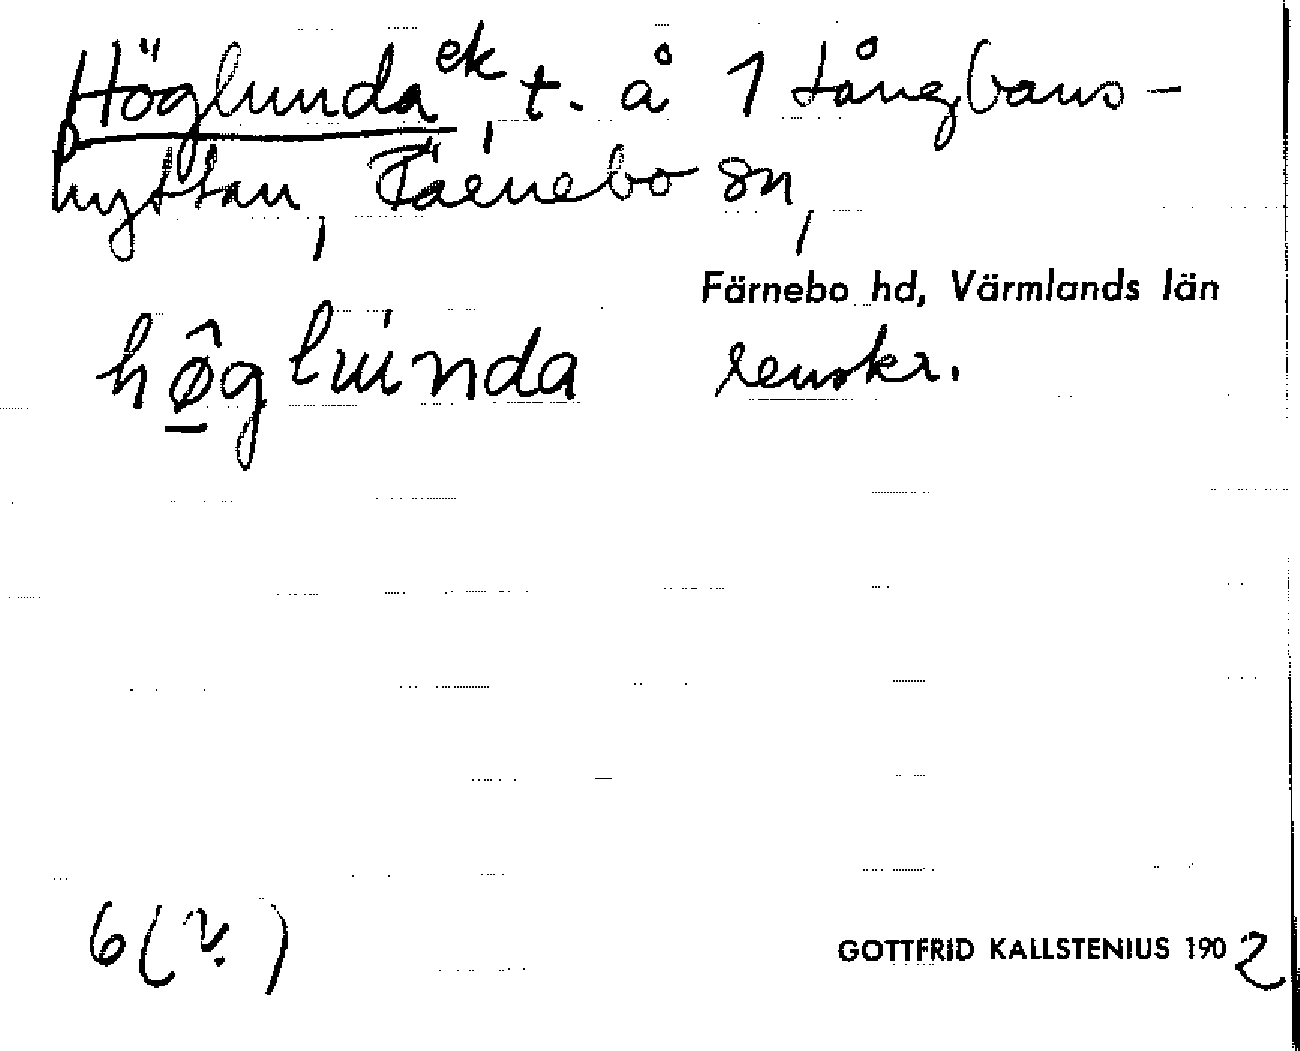 Höglunda ek, t. å 1 Långbans-
hyttan, Färnebo sn,
Färnebo hd, Värmlands län
hø̂glunda renskr.
6(v.)
GOTTFRID KALLSTENIUS 1902